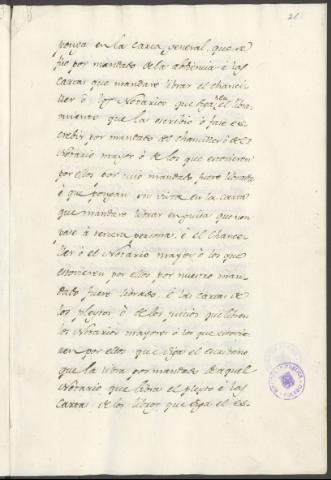 21
ponga en la carta general, que se
fiso por mandado de la abdiencia è las
cartas que mandare librar el chanci-
ller ò los Notarios que diga en el libra-
miento que la escribio ò faie es-
crebir por mandado del chanciller ò de el
Notario mayor ò de los que estovieren
por ellos por mio mandado fuere librado
è que pongan en vista en la carta
que mandere librar en guisa que non
pase à tercera persona, è el Chance-
ller ò el Notario mayor ò los que
estovieren por ellos por nuestro man-
dado fuere librado, è las cartas de
los pleytos ò de los juicios que libren
los Notarios mayores ò los que estovie-
ren por ellos que diga el escribano
que la libra por mandado de aquel
Notario que libra el pleyto è las
carta de los libros que diga el es-